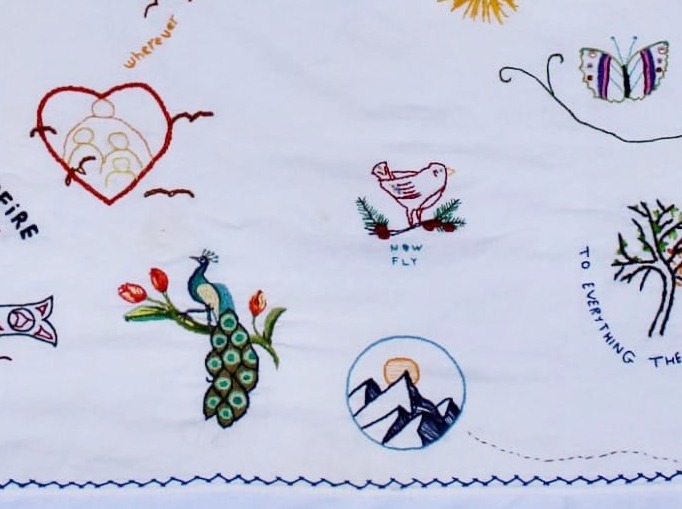 wherever
FIRE
NOW
FLY
TO EVERYTHING THE